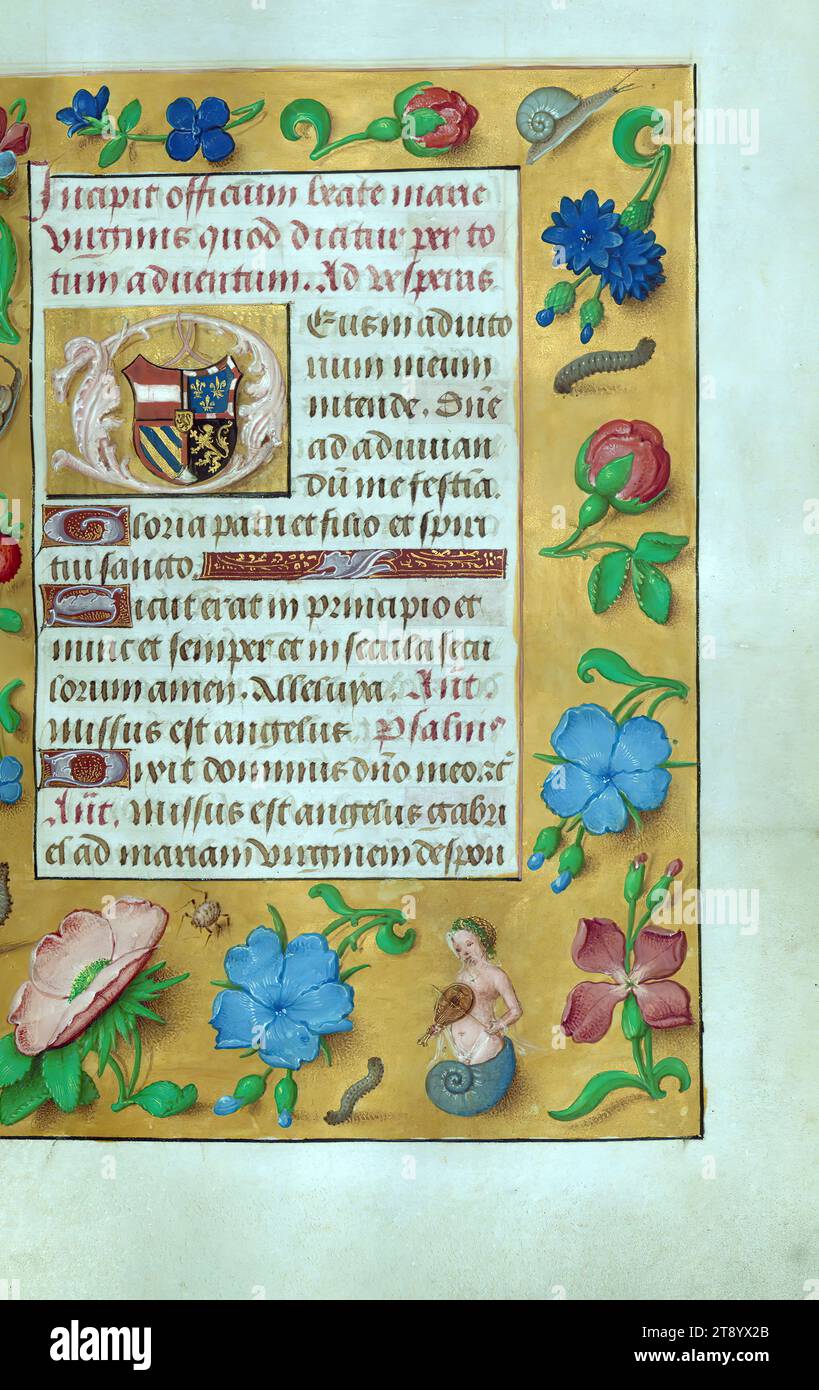 Incipit officium beate marie
virginis quod dicitur per to
tum adventum. Ad vesperas
Deus in adiuto
rium meum
intende. Dñe
ad adiuvan
dũ me festĩa.
Gloria patri et filio et spiri
tui sancto.
Sicut erat in principio et
nunc et semper et in secula secu
lorum amen. Alleluya. Añt
Missus est angelus. Psalmꝰ
Dixit dominus dño meo. zc̃
Añt. Missus est angelus gabri
el ad mariam virginem despon
alamy
alamy
alamy
a
a
a
alamy
Image ID: 2T8YX2B
www.alamy.com